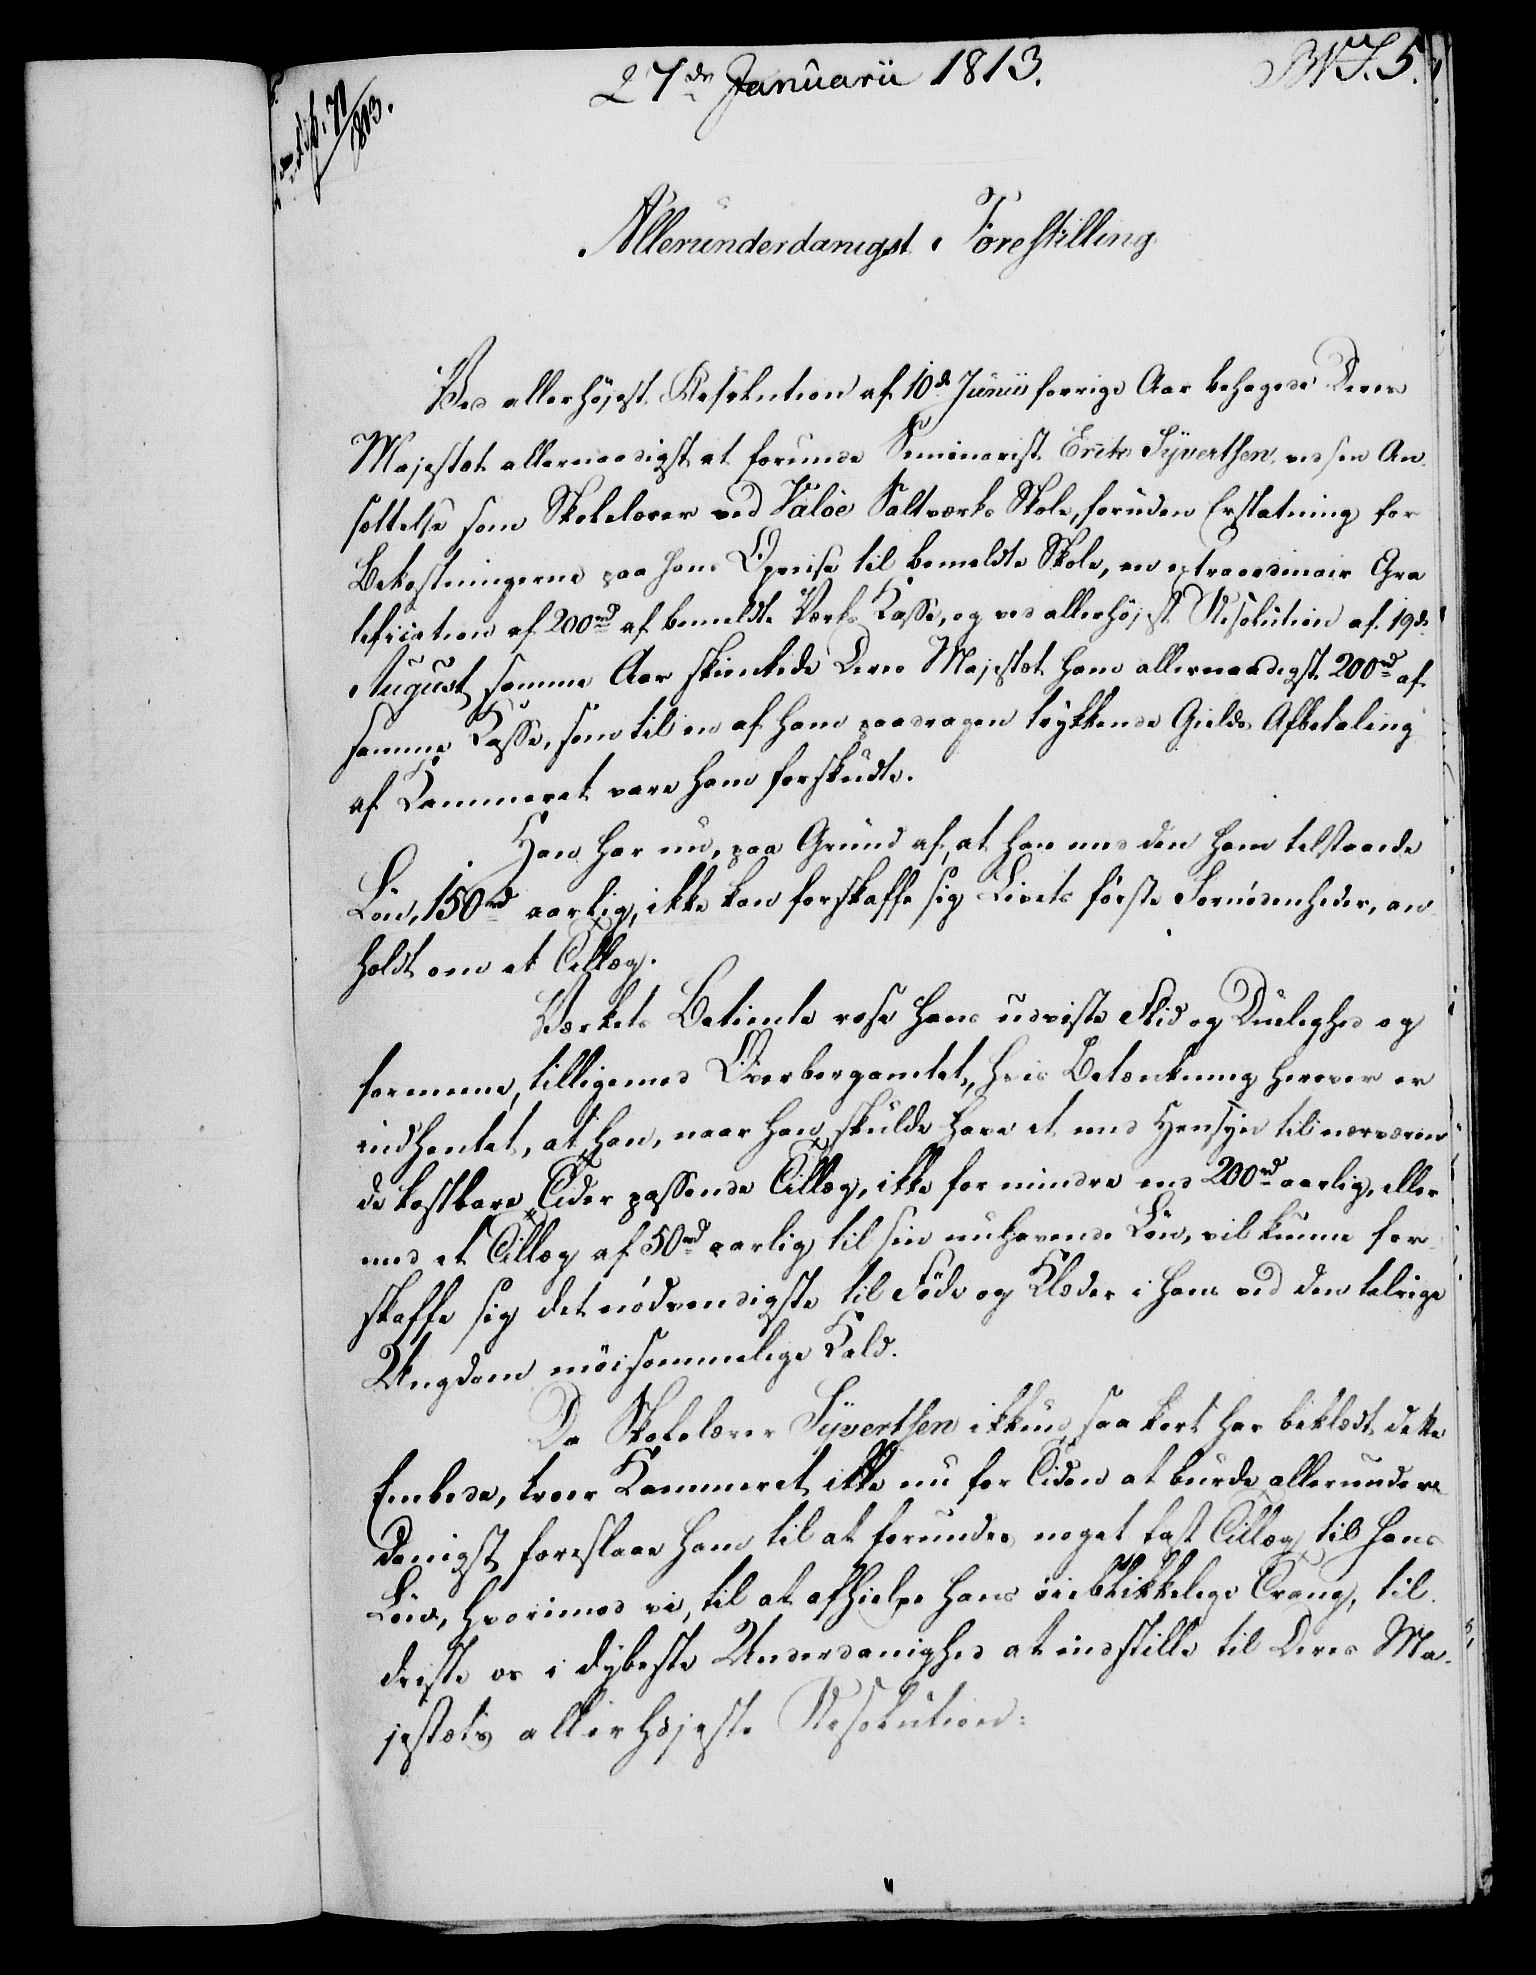 27de Januarii 1813.
Allerunderdanigst Forestilling
Ved allerhöjest Resolution af 10de Junii forrige Aar behagede Deres
Majestæt allernaadigst at forunde Seminarist Erik Syvertsen, ved sin An-
sættelse som Skolelærer ved Valöe Saltværks Skole, foruden Erstatning for
Bekostningerne paa hans Opreise til bemeldte Skole, en extraordinair Gra
tification af 200rd af bemeldte Værks Kasse, og ved allerhöjest Resolution af 19de
August samme Aar skienkede Deres Majestæt ham allernaadigst 200rd af
samme Kasse, som til en af ham paadragen trykkende Gields Afbetaling
af Kammeret vare ham forskudte.
Han har nu, paa Grund af, at han med den ham tilstaaede
Lön, 150rd aarlig, ikke kan forskaffe sig Livets förste Fornödenheder, an-
holdt om et Tillæg.
Værkets Betiente rose hans udviste Flid og Duelighed og
formene, tilligemed Overbergamtet, hvis Betænkning herover er
indhentet, at han, naar han skulde have et med Hensyn til nærværen
de kostbare Tider passende Tillæg, ikke for mindre end 200rd aarlig, eller
med et Tillæg af 50rd aarlig til sin nuhavende Lön, vil kunne for-
skaffe sig det nödvendigste til Föde og Klæder i hans ved den talrige
Ungdom möisommelige Kald.
Da Skolelærer Syvertsen ikkun saa kort har beklædt dette
Embede, troer Kammeret ikke nu for Tiden at burde allerunder-
danigst foreslaae ham til at forundes noget fast Tillæg til hans
Lön, hvorimod vi, til at afhielpe hans öieblikkelige Trang, til-
driste os i dybeste Underdanighed at indstille til Deres Ma-
jestæts allerhöjeste Resolution: